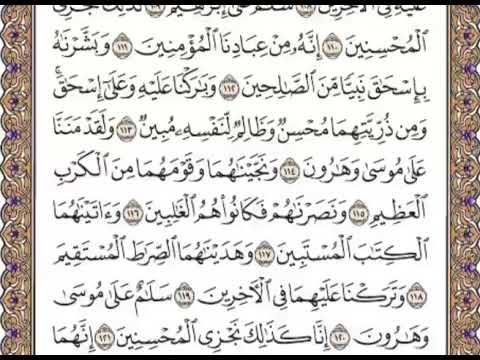 عَلَيْهِ فِي ٱلْـَٔاخِرِينَ ١٠٨ سَلَـٰمٌ عَلَىٰٓ إِبْرَٰهِيمَ ١٠٩ كَذَٰلِكَ نَجْزِي
ٱلْمُحْسِنِينَ ١١٠ إِنَّهُۥ مِنْ عِبَادِنَا ٱلْمُؤْمِنِينَ ١١١ وَبَشَّرْنَـٰهُ
بِإِسْحَـٰقَ نَبِيًّا مِّنَ ٱلصَّـٰلِحِينَ ١١٢ وَبَـٰرَكْنَا عَلَيْهِ وَعَلَىٰٓ إِسْحَـٰقَ ۚ
وَمِن ذُرِّيَّتِهِمَا مُحْسِنٌ وَظَالِمٌ لِّنَفْسِهِۦ مُبِينٌ ١١٣ وَلَقَدْ مَنَنَّا
عَلَىٰ مُوسَىٰ وَهَـٰرُونَ ١١٤ وَنَجَّيْنَـٰهُمَا وَقَوْمَهُمَا مِنَ ٱلْكَرْبِ
ٱلْعَظِيمِ ١١٥ وَنَصَرْنَـٰهُمْ فَكَانُوا۟ هُمُ ٱلْغَـٰلِبِينَ ١١٦ وَءَاتَيْنَـٰهُمَا
ٱلْكِتَـٰبَ ٱلْمُسْتَبِينَ ١١٧ وَهَدَيْنَـٰهُمَا ٱلصِّرَٰطَ ٱلْمُسْتَقِيمَ
١١٨ وَتَرَكْنَا عَلَيْهِمَا فِي ٱلْـَٔاخِرِينَ ١١٩ سَلَـٰمٌ عَلَىٰ مُوسَىٰ
وَهَـٰرُونَ ١٢٠ إِنَّا كَذَٰلِكَ نَجْزِي ٱلْمُحْسِنِينَ ١٢١ إِنَّهُمَا